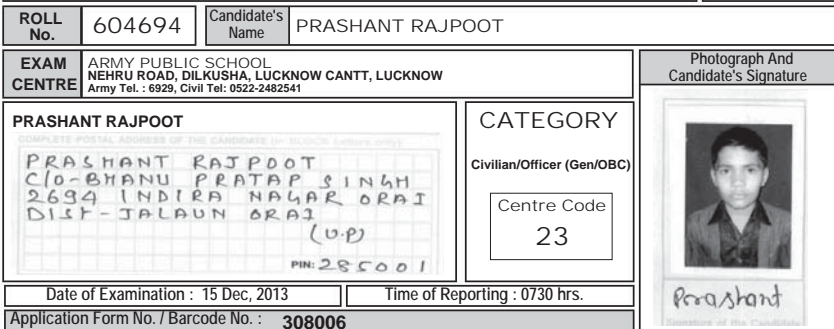 ROLL No.
604694
Candidate's Name
PRASHANT RAJPOOT
EXAM CENTRE
ARMY PUBLIC SCHOOL
NEHRU ROAD, DILKUSHA, LUCKNOW CANTT, LUCKNOW
Army Tel. : 6929, Civil Tel: 0522-2482541
Photograph And
Candidate's Signature
PRASHANT RAJPOOT
COMPLETE POSTAL ADDRESS OF THE CANDIDATE (In BLOCK Letters only)
PRASHANT RAJPOOT
C/O-BHANU PRATAP SINGH
2694 INDIRA NAGAR ORAI
DIST-JALAUN ORAI
(U.P)
PIN: 285001
CATEGORY
Civilian/Officer (Gen/OBC)
Centre Code
23
Prashant
Signature of the Candidate
Date of Examination : 15 Dec, 2013
Time of Reporting : 0730 hrs.
Application Form No. / Barcode No. : 308006